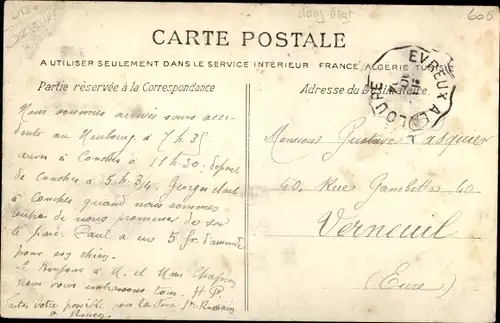 dans État
600
CARTE POSTALE
A UTILISER SEULEMENT DANS LE SERVICE INTÉRIEUR FRANCE, ALGÉRIE, TUNISIE
Partie réservée à la Correspondance
Adresse du Destinataire.
EVREUX A LA LOUPE
Nous sommes arrivés sans acci-
dents au Neubourg à 7 h 35
arrivés à Conches à 11 h 30. départ
de Conches à 5 h 3/4. Georges était
à Conches quand nous sommes
de nous promener
le parc. Paul a eu 5 fr. d'amende
pour son chien.
Le bonjour à M. et Mme
Nous vous embrassons tous. H. P.
Faites votre possible pour la foire St Romain
à Rouen.
Monsieur Gustave Pasquier
40. Rue Gambetta 40
Verneuil
(Eure)